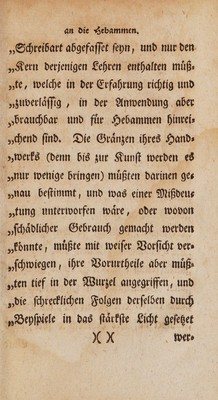 an die Hebammen.
„Schreibart abgefasset seyn, und nur den
„Kern derjenigen Lehren enthalten müß-
„te, welche in der Erfahrung richtig und
„zuverlässig, in der Anwendung aber
„brauchbar und für Hebammen hinrei-
„chend sind. Die Gränzen ihres Hand-
„werks (denn bis zur Kunst werden es
„nur wenige bringen) müßten darinen ge-
„nau bestimmt, und was einer Mißdeu-
„tung unterworfen wäre, oder wovon
„schädlicher Gebrauch gemacht werden
„könnte, müßte mit weiser Vorsicht ver-
„schwiegen, ihre Vorurtheile aber müß-
„ten tief in der Wurzel angegriffen, und
„die schrecklichen Folgen derselben durch
„Beyspiele in das stärkste Licht gesetzet
)( )(
wer-